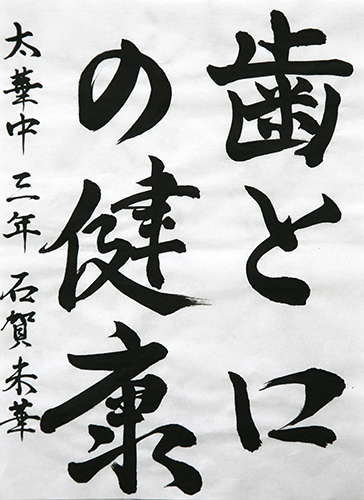 歯と口
の健康
太華中三年石賀未華